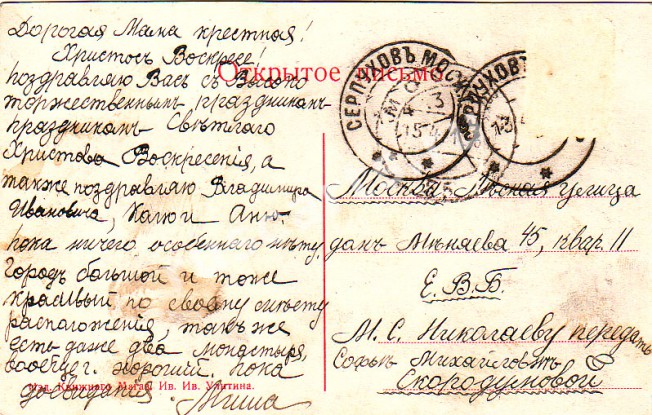 Дорогая Мама крестная!
Христосъ Воскресе!
поздравляю Васъ съ Высоко
торжественнымъ праздникомъ
праздникомъ Свѣтлаго
Христова Воскресения, а
также поздравляю Владимира
Ивановича, Калю и Аню.
пока ничего особеннаго нѣту,
Городъ большой и тоже
красивый по своему
расположения, такъ же
есть даже два монастыря,
вообще г. хорошій. пока
досвидания. Миша
Изд. Книжнаго Магаз. Ив. Ив. Улитина.
Открытое письмо.
СЕРПУХОВЪ МОСК
СЕРПУХОВЪ
Москва. улица
домъ Минаева 45, квар 11
Е. В. Б.
М. С. Николаеву передать
Софьѣ Михайловнѣ
Скородумовой